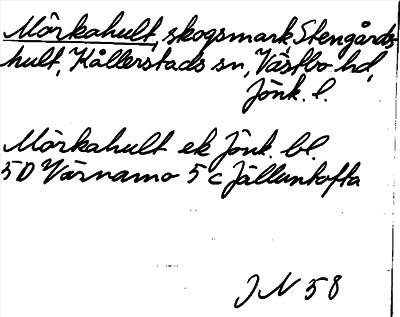 Mörkahult, skogsmark, Stengårds-
hult, Kållerstads sn, Västbo hd,
Jönk. l.
Mörkahult ek Jönk. bl.
5D Värnamo 5 c Jälluntofta
J N 58